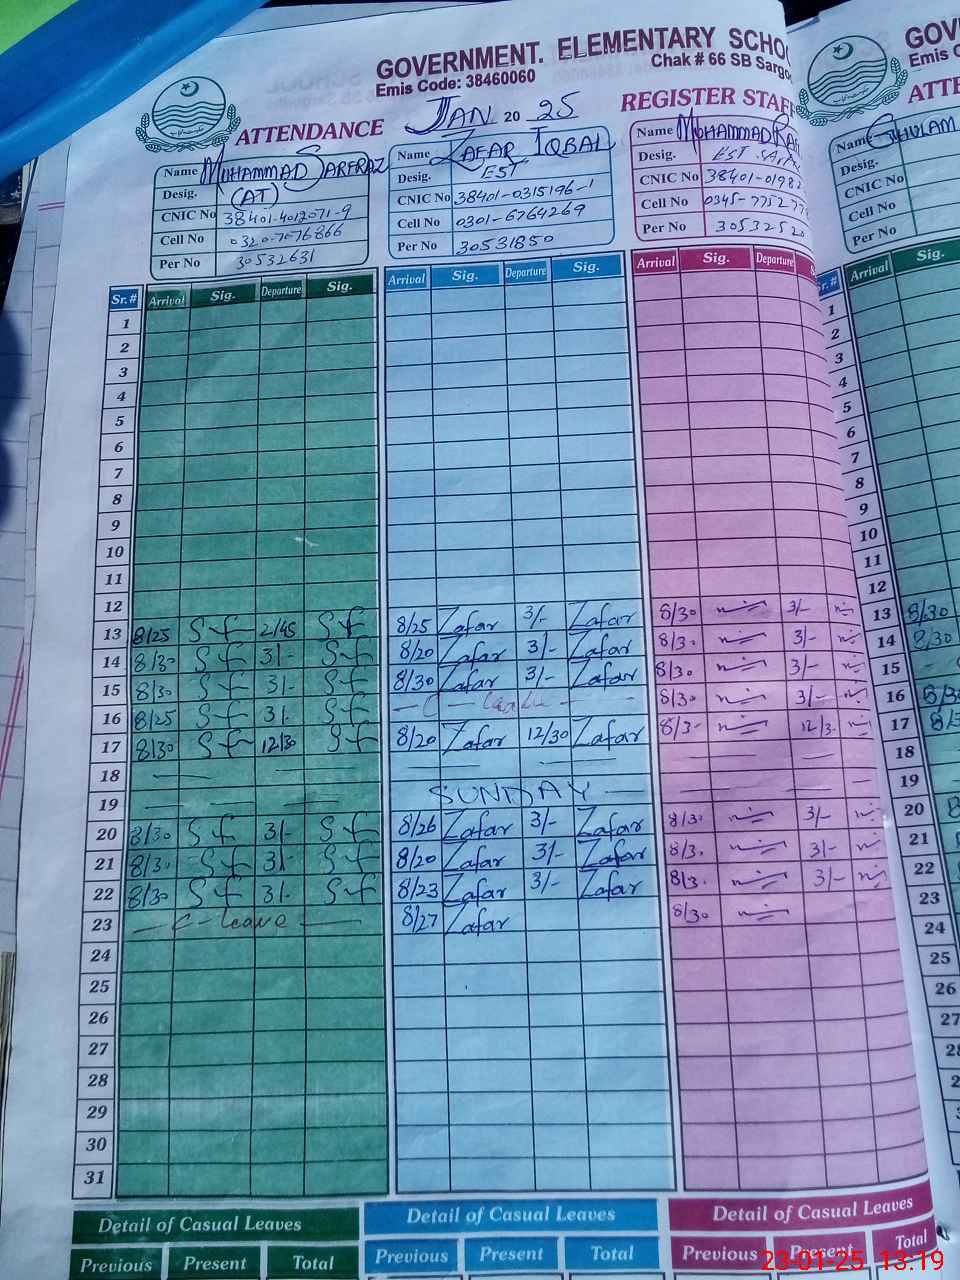 GOVERNMENT. ELEMENTARY SCHO
Emis Code: 38460060
Chak # 66 SB Sargo
ATTENDANCE JAN 20 25 REGISTER STAFF
Name MUHAMMAD SARFRAZ
Desig. (AT)
CNIC No 38401-4012071-9
Cell No 0320-7076866
Per No 30532631
Name ZAFAR IQBAL
Desig. EST
CNIC No 38401-0315196-1
Cell No 0301-6764269
Per No 30531850
Name MUHAMMAD
Desig. EST
CNIC No 38401-0198
Cell No 0345-7752
Per No 30532520
Sr.# Arrival Sig. Departure Sig. Arrival Sig. Departure Sig. Arrival Sig. Departure S
1
2
3
4
5
6
7
8
9
10
11
12
13 8/25 Sf 2/45 Sf 8/25 Zafar 3/- Zafar 8/30 3/-
14 8/30 Sf 3/- Sf 8/20 Zafar 3/- Zafar 8/3. 3/-
15 8/30 Sf 3/- Sf 8/30 Zafar 3/- Zafar 8/30 3/-
16 8/25 Sf 3/- Sf — C — Leave — 8/30 3/-
17 8/30 Sf 12/30 Sf 8/20 Zafar 12/30 Zafar 8/3- 12/3.
18
19 SUNDAY
20 8/30 Sf 3/- Sf 8/26 Zafar 3/- Zafar 8/30 3/-
21 8/3. Sf 3/- Sf 8/20 Zafar 3/- Zafar 8/3. 3/-
22 8/30 Sf 3/- Sf 8/23 Zafar 3/- Zafar 8/3. 3/-
23 — C - Leave — 8/27 Zafar 8/30
24
25
26
27
28
29
30
31
Detail of Casual Leaves Detail of Casual Leaves Detail of Casual Leaves
Previous Present Total Previous Present Total Previous Present Total
GOV
Emis C
ATTE
Name GHULAM
Desig.
CNIC No
Cell No
Per No
Sr.# Arrival Sig.
1
2
3
4
5
6
7
8
9
10
11
12
13 8/30
14 8/30
15
16
17
18
19
20
21
22
23
24
25
26
27
28
23-01-25 13:19